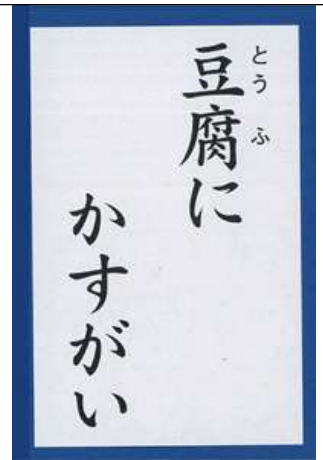 豆腐に
とうふ
かすがい